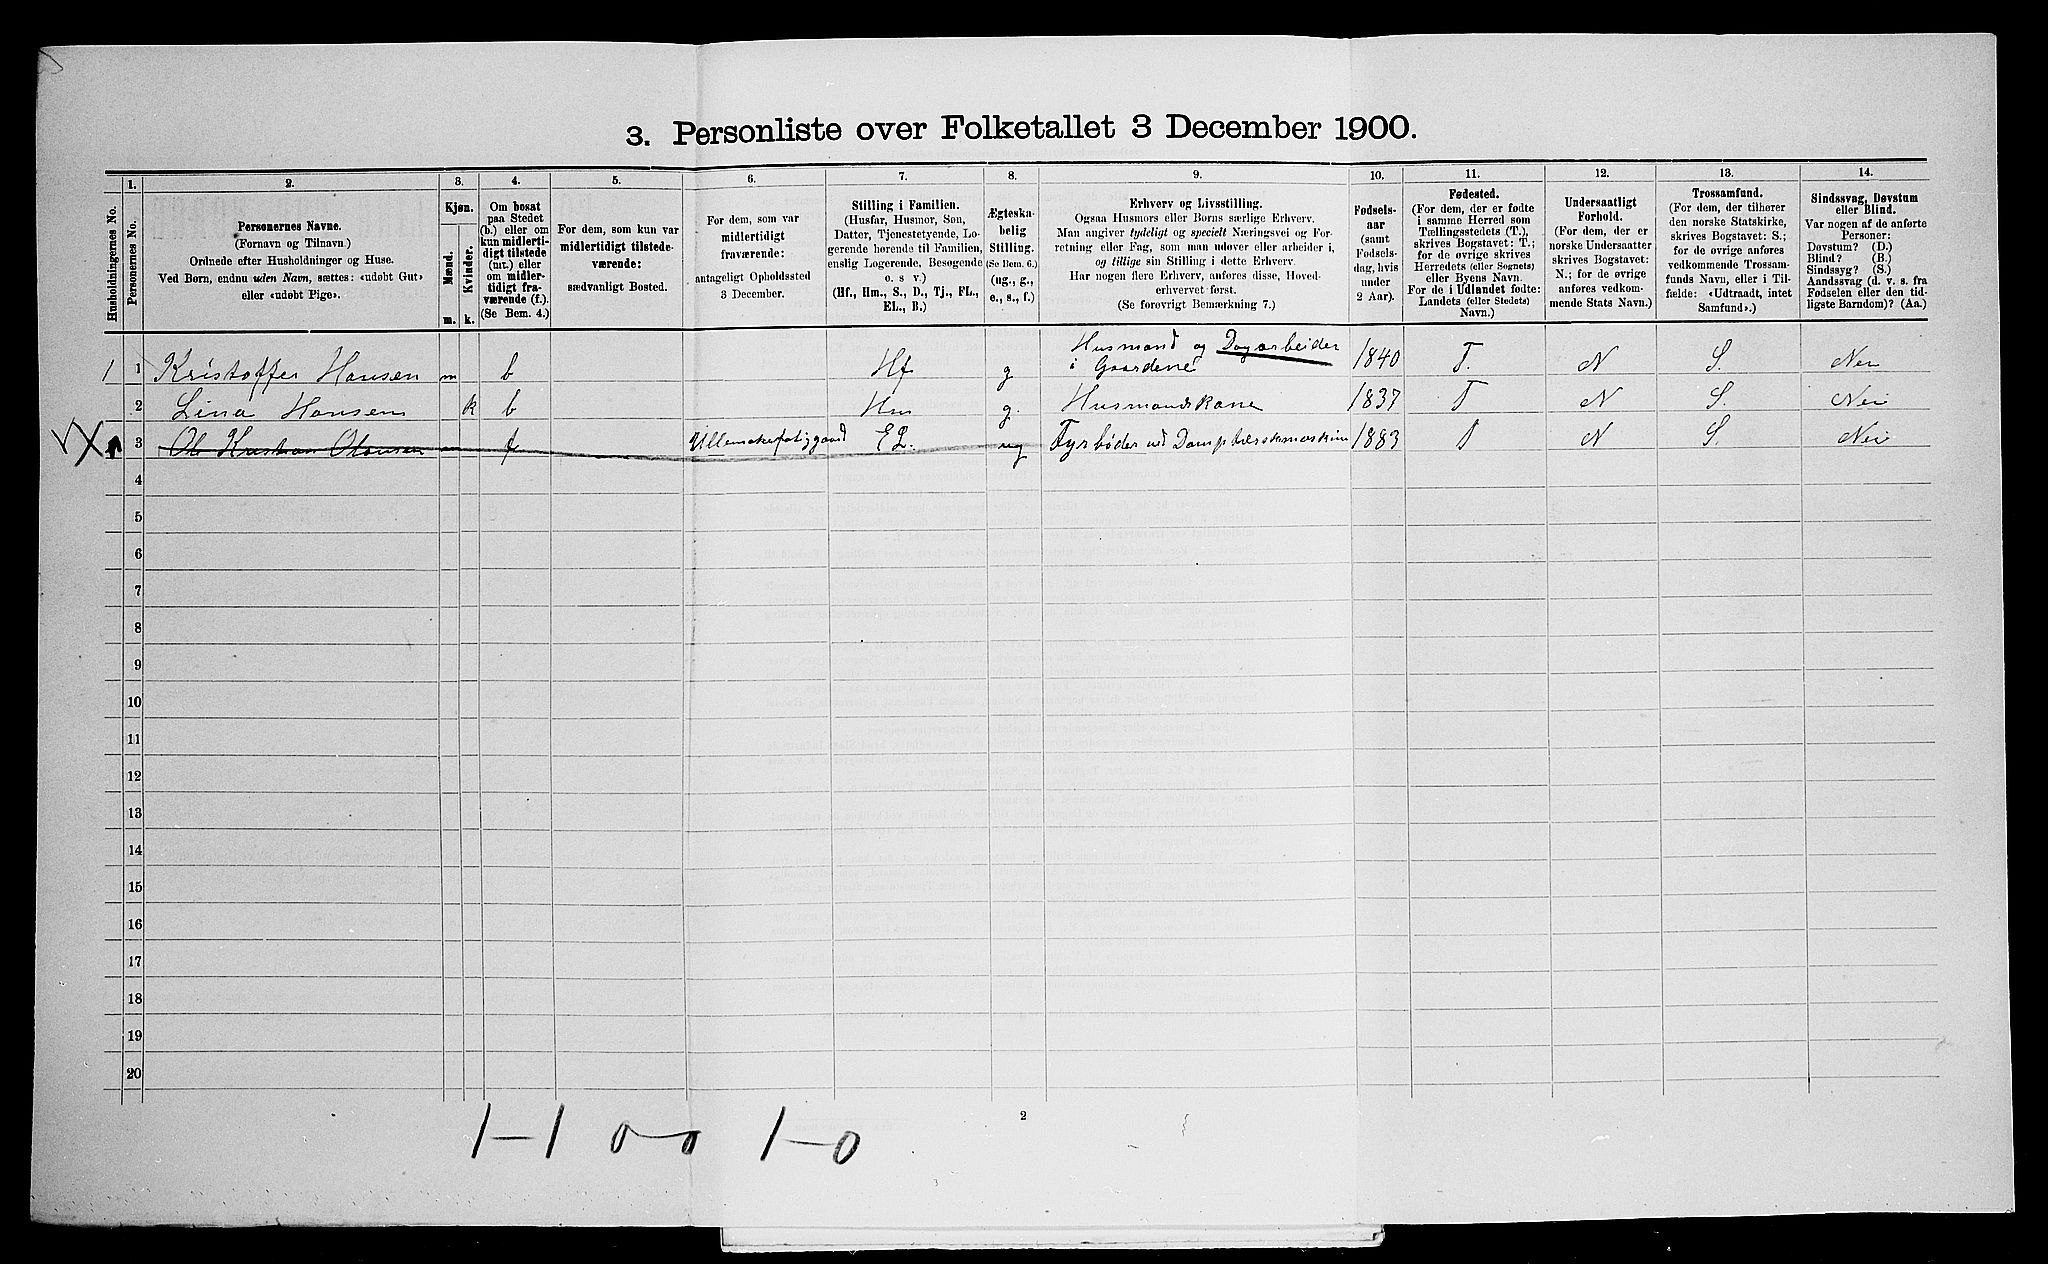 3. Personliste over Folketallet 3 December 1900.
Husholdningernes No.
1.
Personernes No.
2.
Personernes Navne.
(Fornavn og Tilnavn.)
Ordnede efter Husholdninger og Huse.
Ved Børn, endnu uden Navn, sættes: «udøbt Gut»
eller «udøbt Pige».
3.
Kjøn.
Mænd.
Kvinder.
m.
k.
4.
Om bosat
paa Stedet
(b.) eller om
kun midlerti-
digt tilstede
(mt.) eller
om midler-
tidigt fra-
værende (f.).
(Se Bem. 4.)
5.
For dem, som kun var
midlertidigt tilstede-
værende:
sædvanligt Bosted.
6.
For dem, som var
midlertidigt
fraværende:
antageligt Opholdssted
3 December.
7.
Stilling i Familien.
(Husfar, Husmor, Søn,
Datter, Tjenestetyende, Lo-
gerende hørende til Familien,
enslig Logerende, Besøgende
o. s v.)
(Hf., Hm., S., D., Tj., FL.,
EL., B.)
8.
Ægteska-
belig
Stilling.
(Se Bem. 6.)
(ug., g.,
e., s., f.)
9.
Erhverv og Livsstilling.
Ogsaa Husmors eller Børns særlige Erhverv.
Man angiver tydeligt og specielt Næringsvei og For-
retning eller Fag, som man udøver eller arbeider i,
og tillige sin Stilling i dette Erhverv.
Har nogen flere Erhverv, anføres disse, Hoved-
erhvervet først.
(Se forøvrigt Bemærkning 7.)
10.
Fødsels-
aar
(samt
Fødsels-
dag, hvis
under
2 Aar).
11.
Fødested.
(For dem, der er født
i samme Herred som
Tællingsstedets (T.),
skrives Bogstavet: T.;
for de øvrige skrives
Herredets (eller Sognets)
eller Byens Navn.
For de i Udlandet fødte:
Landets (eller Stedets)
Navn.)
12.
Undersaatligt
Forhold.
(For dem, der er
norske Undersaatter
skrives Bogstavet:
N.; for de øvrige
anføres vedkom-
mende Stats Navn.)
13.
Trossamfund.
(For dem, der tilhører
den norske Statskirke,
skrives Bogstavet: S.;
for de øvrige anføres
vedkommende Trossam-
funds Navn, eller i Til-
fælde: «Udtraadt, intet
Samfund».)
14.
Sindssvag, Døvstum
eller Blind.
Var nogen af de anførte
Personer:
Døvstum? (D.)
Blind? (B.)
Sindssyg? (S.)
Aandssvag (d. v. s. fra
Fødselen eller den tid-
ligste Barndom)? (Aa.)
1 1 Kristoffer Hansen m b Hf g Husmand og Dagarbeider i Gaardene 1840 T. N S. Nei
2 Lina Hansen k b Hm g. Husmandskone 1837 T N S. Nei
3 Ole Kristian m f EL. ug Fyrbøder ved 1883 T N S. Nei
4
5
6
7
8
9
10
11
12
13
14
15
16
17
18
19
20
2
1–1 0–0 1–0